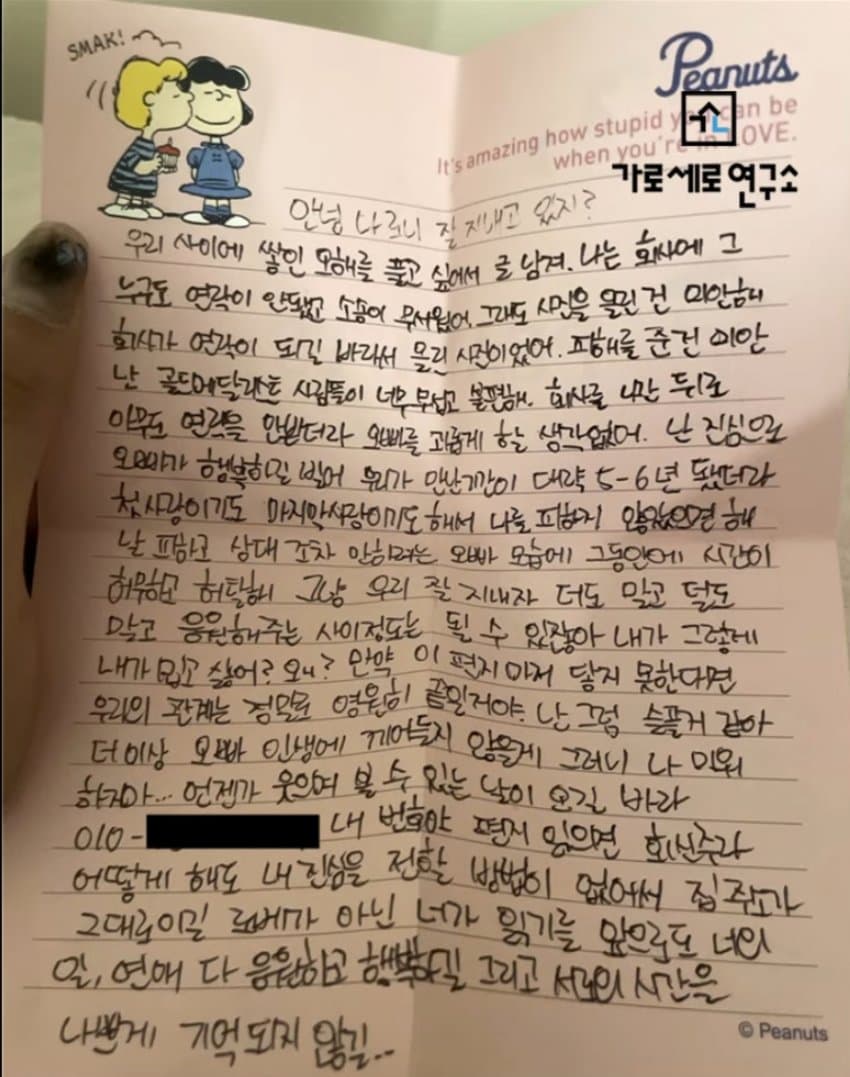 SMAK!
Peanuts
It's amazing how stupid you can be
when you're in LOVE.
가로세로연구소
안녕 나르니 잘 지내고 있지?
우리 사이에 쌓인 오해를 풀고 싶어서 글 남겨. 나는 회사에 그
누구도 연락이 안됐고 소송이 무서웠어. 그래도 사진을 올린 건 미안해
회사가 연락이 되길 바래서 올린 사진이었어. 피해를 준건 미안
난 골드메달리스트 사람들이 너무 무섭고 불편해. 회사를 나간 뒤로
아무도 연락을 안받더라 오빠를 괴롭게 할 생각없어. 난 진심으로
오빠가 행복하길 빌어 우리가 만난기간이 대략 5-6년 됐더라
첫사랑이기도 마지막사랑이기도해서 나를 피하지 않았으면 해
날 피하고 상대 조차 안하려는 오빠 모습에 그동안에 시간이
허무하고 허탈해 그냥 우리 잘 지내자 더도 말고 덜도
말고 응원해주는 사이정도는 될 수 있잖아 내가 그렇게
내가 밉고 싫어? 왜? 만약 이 편지마저 닿지 못한다면
우리의 관계는 정말로 영원히 끝일거야. 난 그럼 슬플거 같아
더이상 오빠 인생에 끼어들지 않을게 그러니 나 미워
하지마... 언젠가 웃으며 볼 수 있는 날이 오길 바라
010- 내 번호야 편지 읽으면 회신주라
어떻게 해도 내 진심을 전할 방법이 없어서 집주소가
그대로이길 로베가 아닌 너가 읽기를 앞으로도 너의
일, 연애 다 응원하고 행복하길 그리고 서로의 시간을
나쁘게 기억되지 않길..
© Peanuts